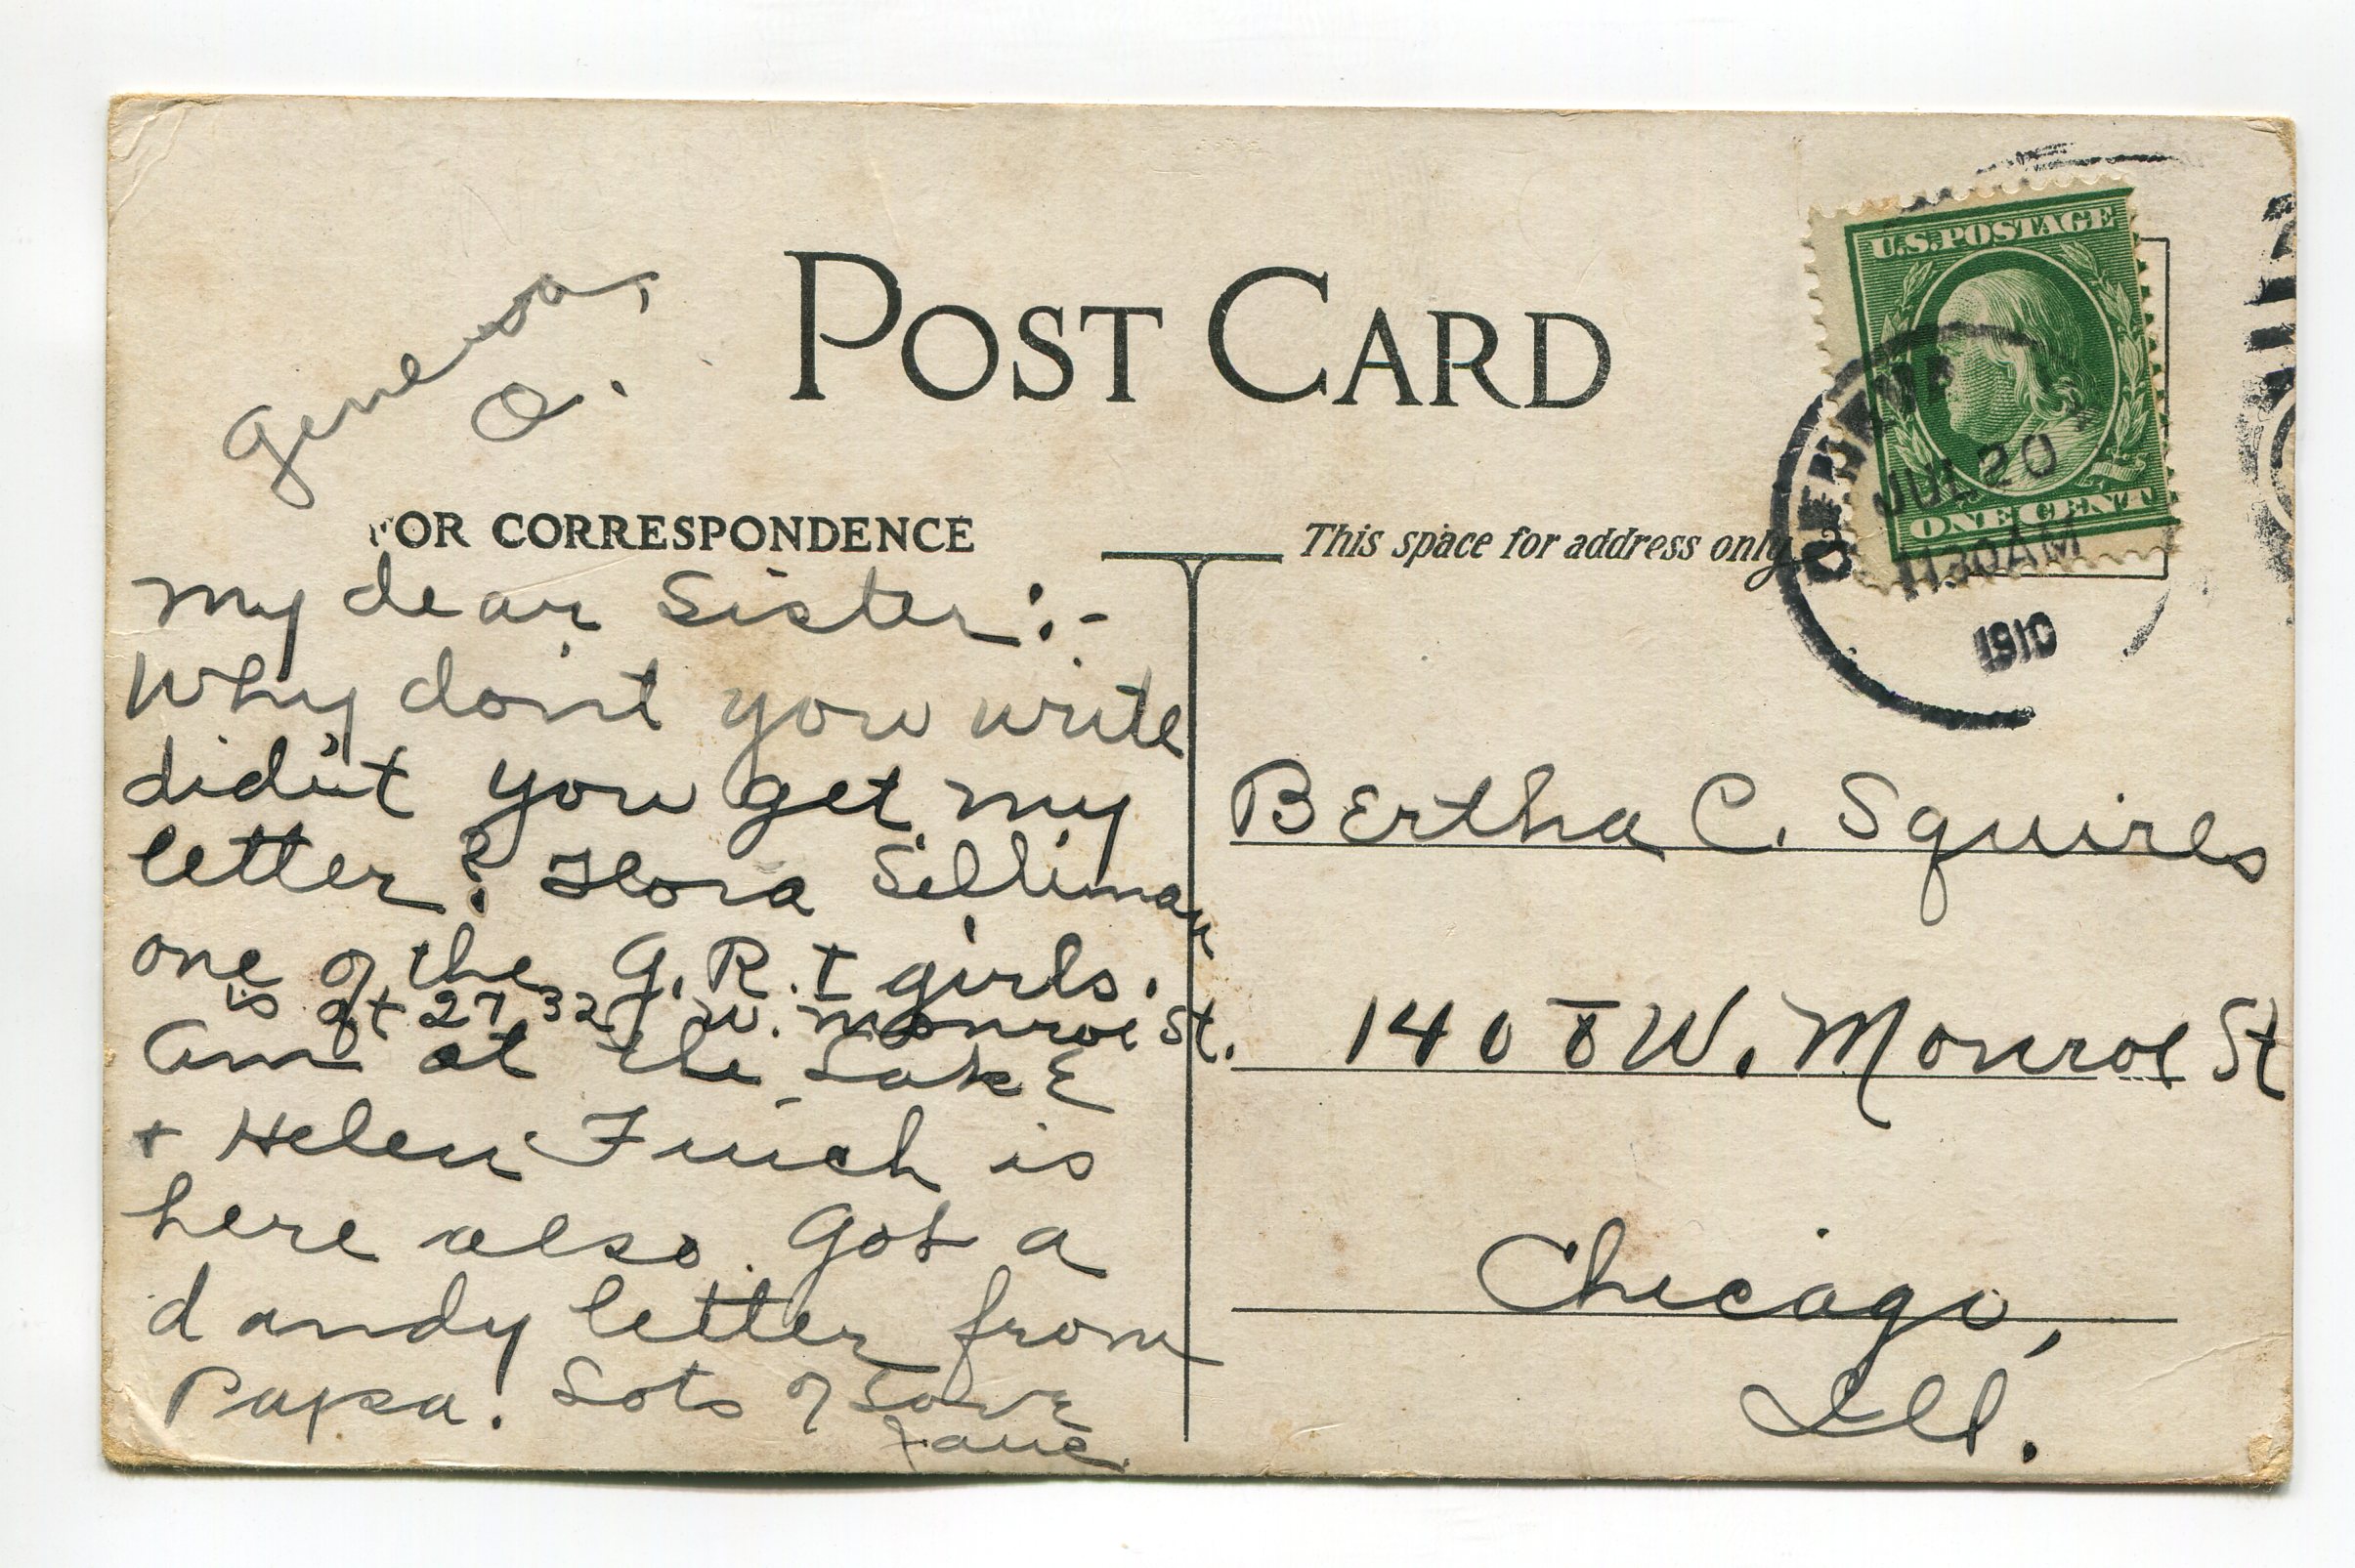 Geneva,
O.
POST CARD
U.S. POSTAGE
ONE CENT
GENEVA
JUL 20
1130AM
1910
FOR CORRESPONDENCE
This space for address only
My dear Sister:-
Why don't you write
didn't you get my
letter? Flora Silliman
one of the G.R.I girls.
is at 2732 W. Monroe St.
Am at the Lake
+ Helen Finch is
here also. Got a
dandy letter from
Papa. Lots of Love
Jane.
Bertha C. Squires
1408 W. Monroe St
Chicago,
Ill.